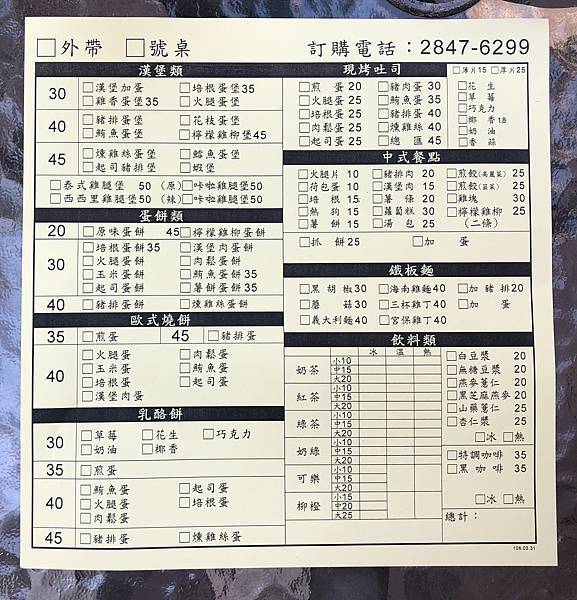 □外帶 □號桌 訂購電話：2847-6299
漢堡類
30 □漢堡加蛋 □培根蛋堡35
□雞香蛋堡35 □火腿蛋堡
40 □豬排蛋堡 □花枝蛋堡
□鮪魚蛋堡 □檸檬雞柳堡45
45 □燻雞絲蛋堡 □鱈魚蛋堡
□起司豬排堡 □蝦堡
□泰式雞腿堡 50 (原)□咔啦雞腿堡50
□西西里雞腿堡50 (辣)□咔啦雞腿堡50
蛋餅類
20 □原味蛋餅 45□檸檬雞柳蛋餅
30 □培根蛋餅35 □漢堡肉蛋餅
□火腿蛋餅 □肉鬆蛋餅
□玉米蛋餅 □鮪魚蛋餅35
□起司蛋餅 □薯餅蛋餅35
40 □豬排蛋餅 □燻雞絲蛋餅
歐式燒餅
35 □煎蛋 45 □豬排蛋
40 □火腿蛋 □肉鬆蛋
□玉米蛋 □鮪魚蛋
□培根蛋 □起司蛋
□漢堡肉蛋
乳酪餅
30 □草莓 □花生 □巧克力
□奶油 □椰香
35 □煎蛋
40 □鮪魚蛋 □起司蛋
□火腿蛋 □培根蛋
□肉鬆蛋
45 □豬排蛋 □燻雞絲蛋
現烤吐司 □薄片15 □厚片25
□煎蛋 20 □豬肉蛋 30 □花生
□火腿蛋 25 □鮪魚蛋 35 □草莓
□培根蛋 25 □豬排蛋 40 □巧克力
□肉鬆蛋 25 □燻雞絲 40 □椰香18
□起司蛋 25 □總匯 45 □奶油
□香蒜
中式餐點
□火腿片 10 □豬排肉 20 □煎餃(高麗菜) 25
□荷包蛋 10 □漢堡肉 15 □煎餃(韮菜) 25
□培根 15 □薯條 20 □雞塊 30
□熱狗 15 □蘿蔔糕 30 □檸檬雞柳 25
□薯餅 15 □湯包 25 (二條)
□抓餅25 □加蛋
鐵板麵
□黑胡椒30 □海南雞麵40 □加豬排20
□蘑菇30 □三杯雞丁40 □加蛋
□義大利麵40 □宮保雞丁40
飲料類
冰 溫 熱
奶茶 小10
中15
大20
紅茶 小10
中15
大20
綠茶 小10
中15
大20
奶綠 小10
中15
大20
可樂 小10
中15
大20
柳橙 小15
中20
大25
□白豆漿 20
□無糖豆漿 20
□燕麥薏仁 20
□黑芝麻燕麥 20
□山藥薏仁 25
□杏仁漿 25
□冰 □熱
□特調咖啡 35
□黑咖啡 35
□冰 □熱
總計：
106.03.31